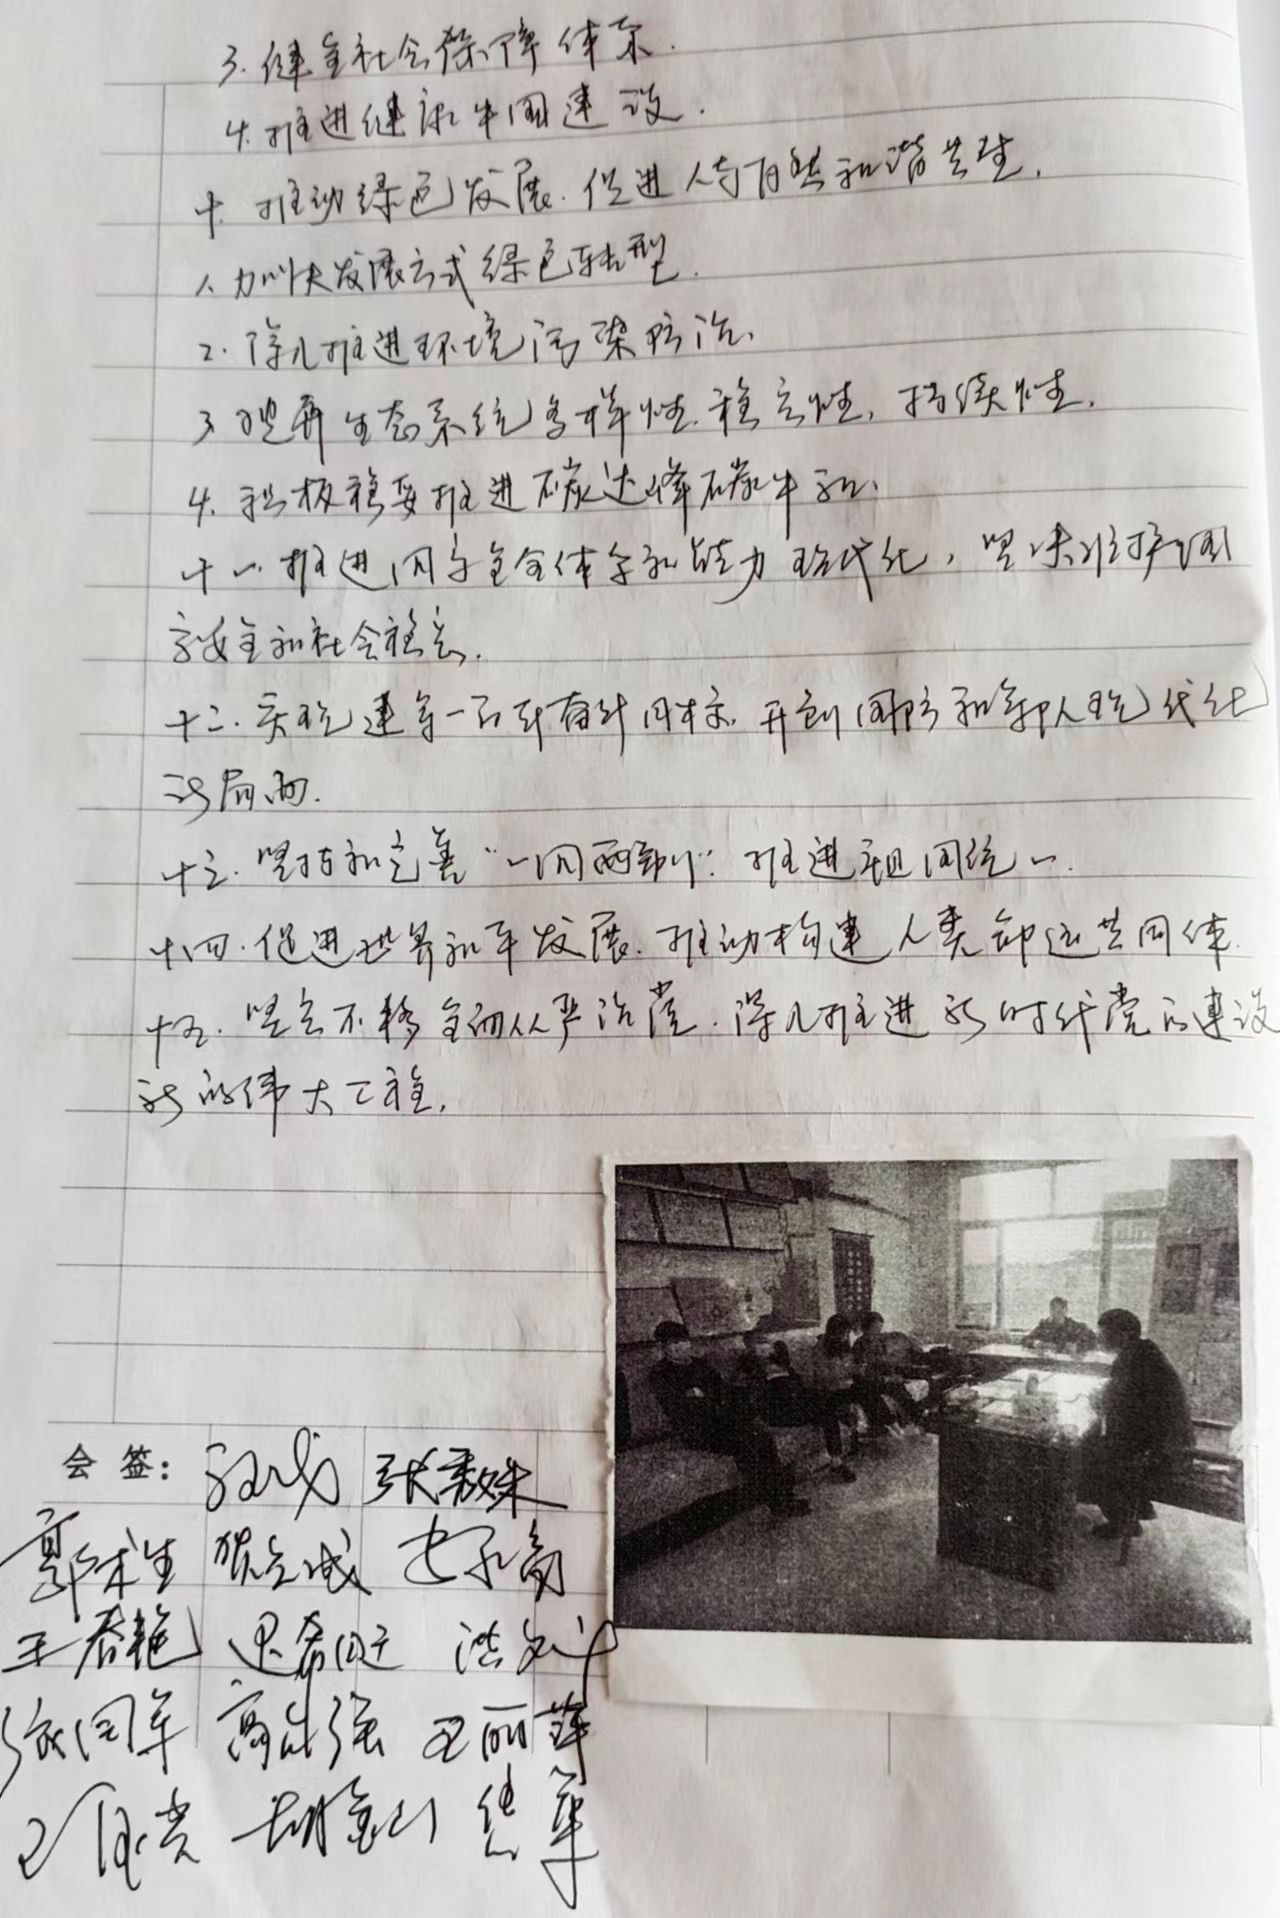 3.健全社会保障体系.
4.推进健康中国建设.
十.推动绿色发展.促进人与自然和谐共生.
1.加快发展方式绿色转型.
2.深入推进环境污染防治.
3.提升生态系统多样性.稳定性,持续性.
4.积极稳妥推进碳达峰碳中和.
十一.推进国家安全体系和能力现代化,坚决维护国
家安全和社会稳定.
十二.实现建军一百年奋斗目标.开创国防和军队现代化
新局面.
十三.坚持和完善“一国两制”.推进祖国统一.
十四.促进世界和平发展.推动构建人类命运共同体.
十五.坚定不移全面从严治党.深入推进新时代党的建设
新的伟大工程.
会签:
张素妹
郭术生 贺立诚
王春艳
张国军 高生强 王丽萍
胡金山